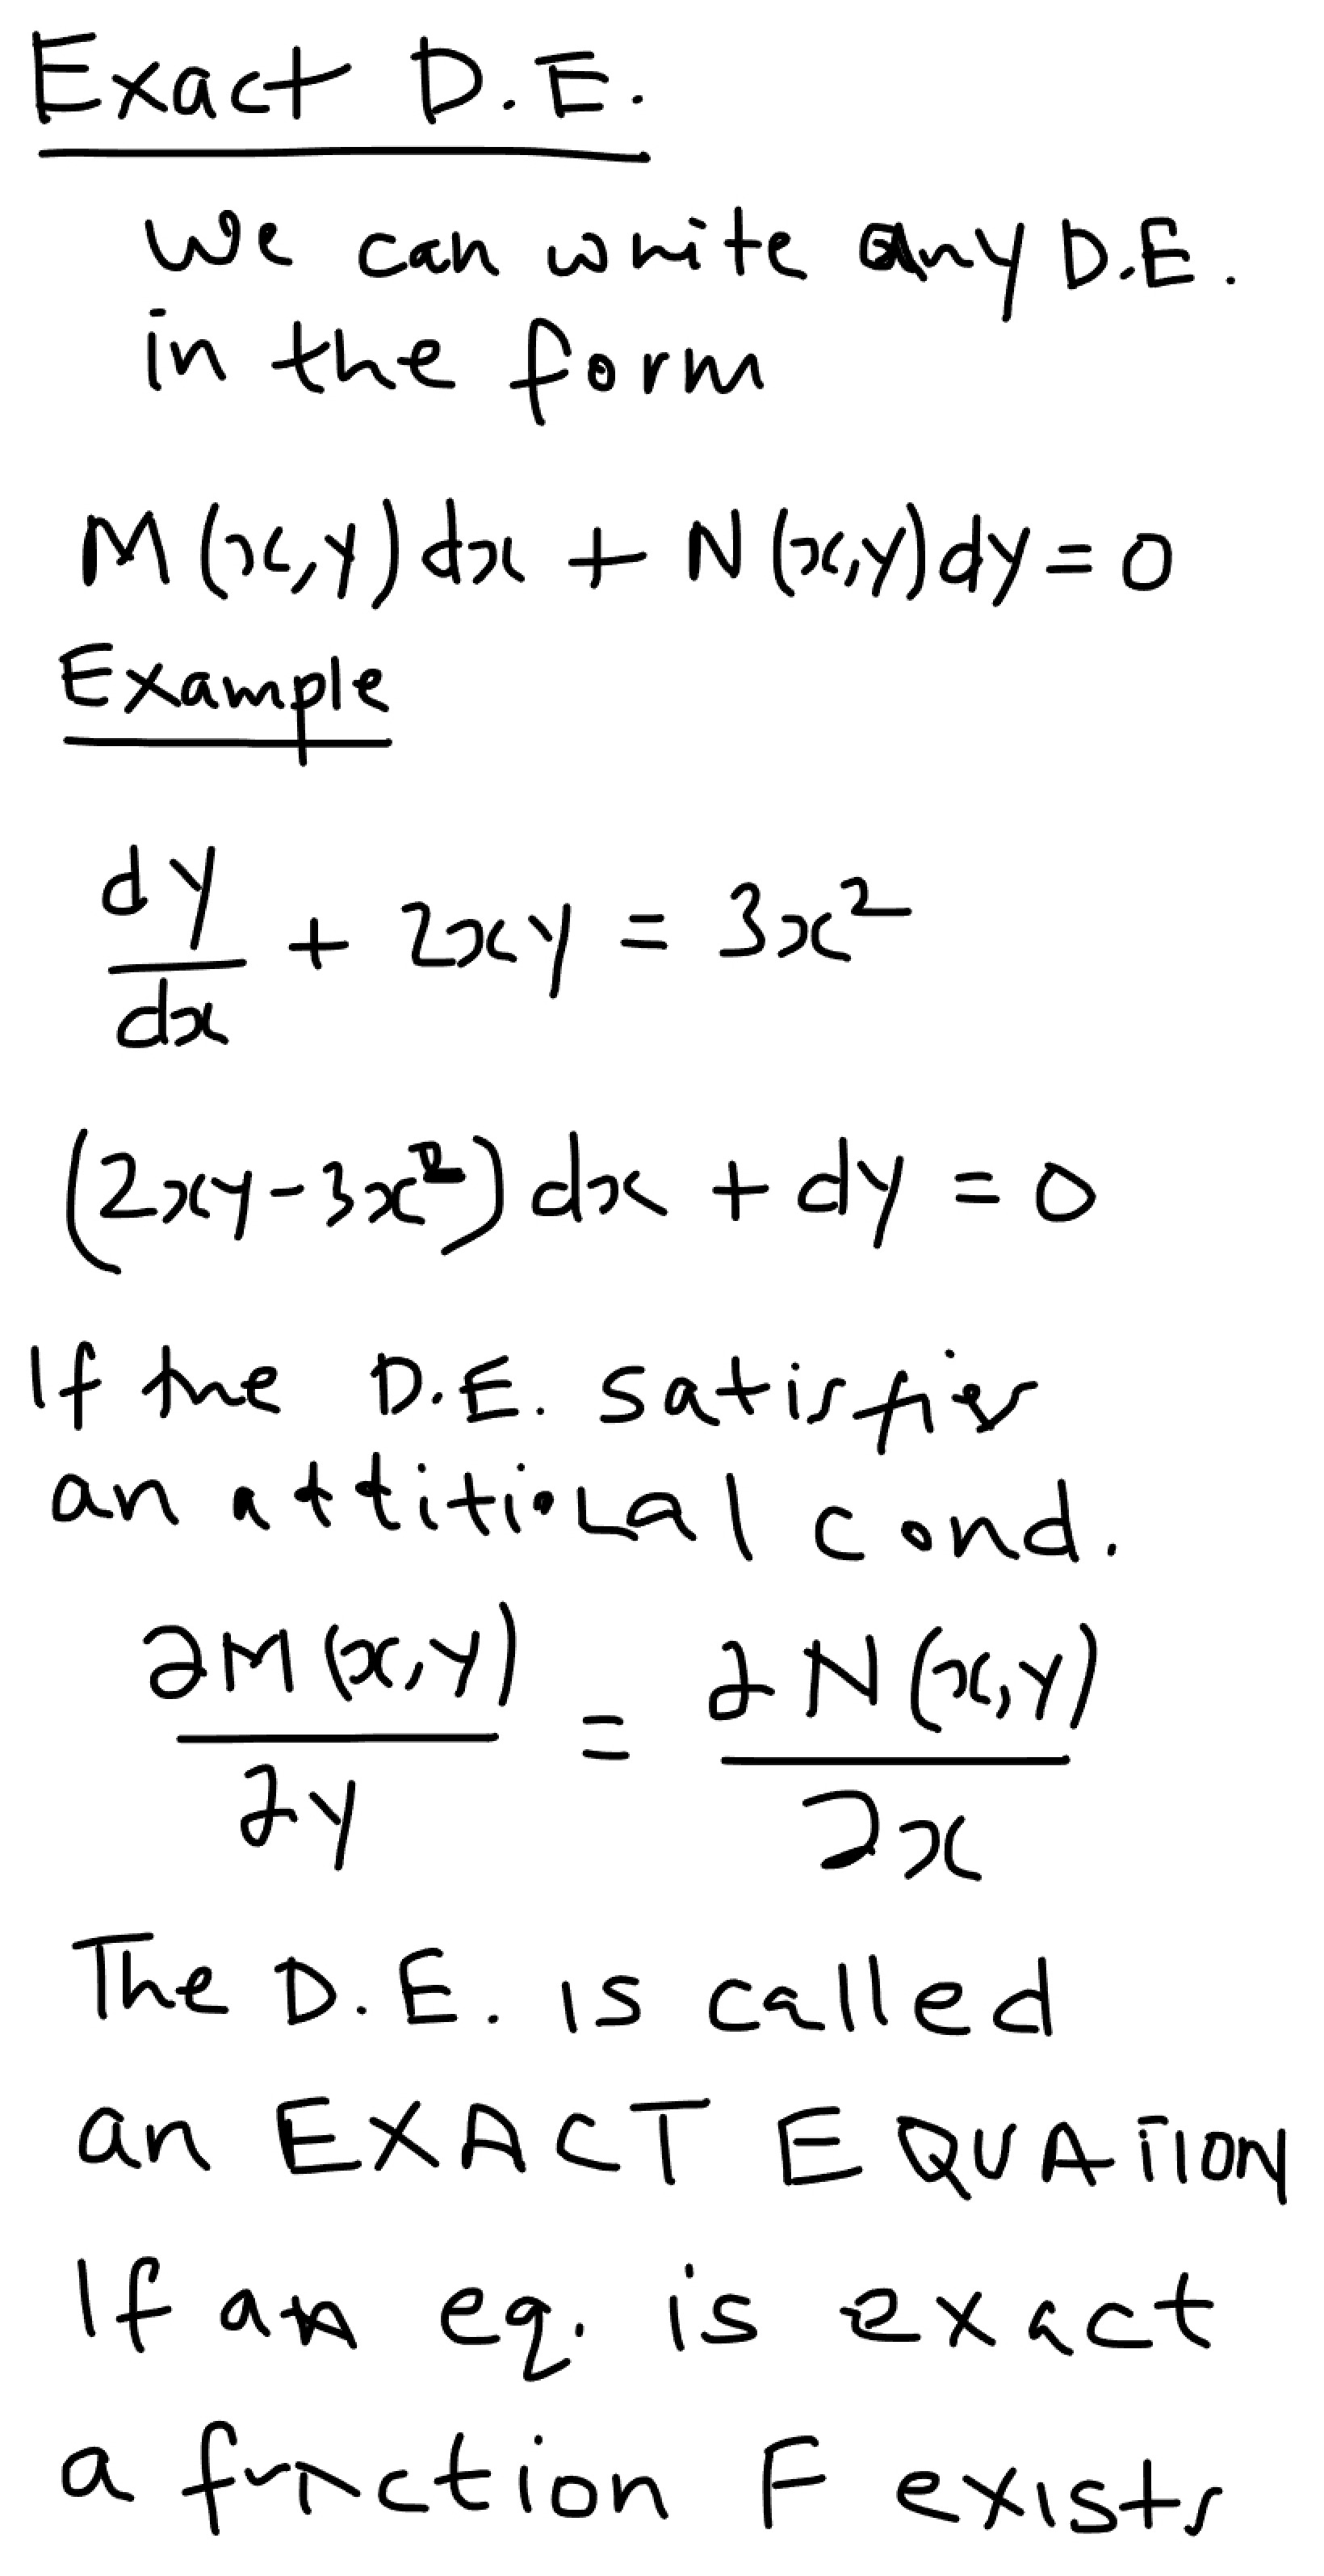 Exact D.E.
We can write any D.E.
in the form
M(x,y)dx + N(x,y)dy = 0
Example
dy/dx + 2xy = 3x²
(2xy-3x²)dx + dy = 0
If the D.E. satisfies
an attitional cond.
∂M(x,y)/∂y = ∂N(x,y)/∂x
The D.E. is called
an EXACT EQUATION
If an eq. is exact
a function F exists